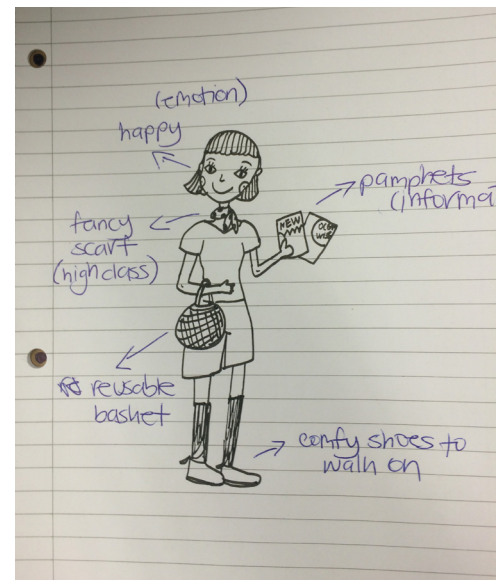 (emotion)
happy
pamphets
(informa
NEW
fancy
scarf
(high class)
reusable
basket
comfy shoes to
walk on